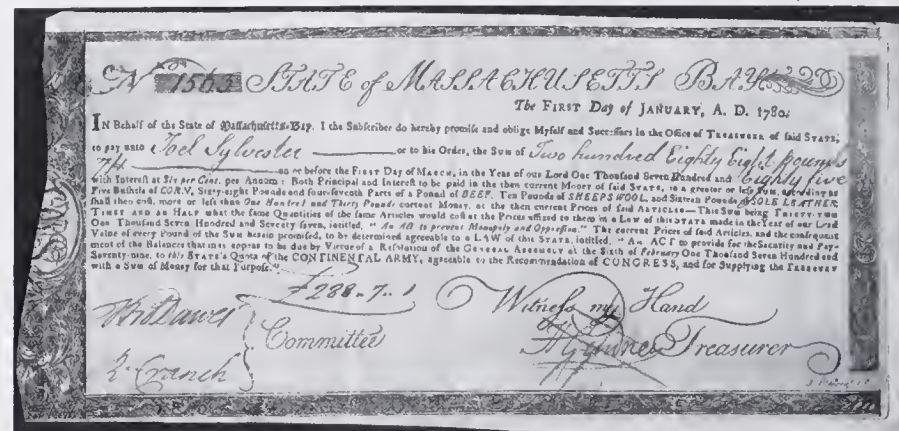 No 1563 STATE of MASSACHUSETTS BAY
The FIRST Day of JANUARY, A. D. 1780.
IN Behalf of the State of Massachusetts-Bay, I the Subscriber do hereby promise and oblige Myself and Successors in the Office of TREASURER of said STATE,
to pay unto Joel Sylvester or to his Order, the Sum of Two hundred Eighty Eight pounds
7/1 on or before the FIRST Day of MARCH, in the Year of our Lord One Thousand Seven Hundred and Eighty five
with Interest at Six per Cent. per Annum: Both Principal and Interest to be paid in the then current Money of said STATE, in a greater or less SUM, according as
Five Bushels of CORN, Sixty-eight Pounds and four-seventh Parts of a Pound of BEEF, Ten Pounds of SHEEPS WOOL, and Sixteen Pounds of SOLE LEATHER
shall then cost, more or less than One Hundred and Thirty Pounds current Money, at the then current Prices of said ARTICLES—This SUM being THIRTY-TWO
TIMES AND AN HALF what the same Quantities of the same Articles would cost at the Prices affixed to them in a Law of this STATE made in the Year of our Lord
One Thousand Seven Hundred and Seventy seven, intitled, "An ACT to prevent Monopoly and Oppression." The current Prices of said Articles, and the consequent
Value of every Pound of the Sum herein promised, to be determined agreeable to a LAW of this STATE, intitled, "An ACT to provide for the Security and Pay-
ment of the Balances that may appear to be due by Virtue of a Resolution of the GENERAL ASSEMBLY of the Sixth of February One Thousand Seven Hundred and
Seventy-nine, to this STATE's Quota of the CONTINENTAL ARMY, agreeable to the Recommendation of CONGRESS, and for Supplying the TREASURY
with a Sum of Money for that Purpose."
£288-7-1 Witness my Hand
Dawes
Committee
HGardner Treasurer
R Cranch